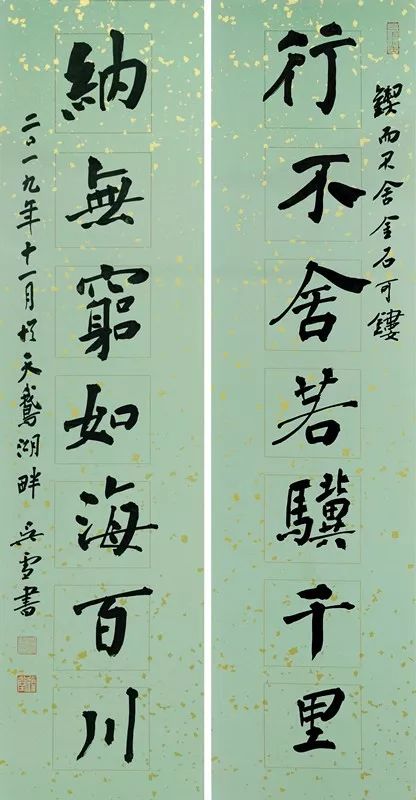 鍥而不舍金石可鏤
行不舍若驥千里
納無窮如海百川
二〇一九年十一月於天鵝湖畔 吳雪書